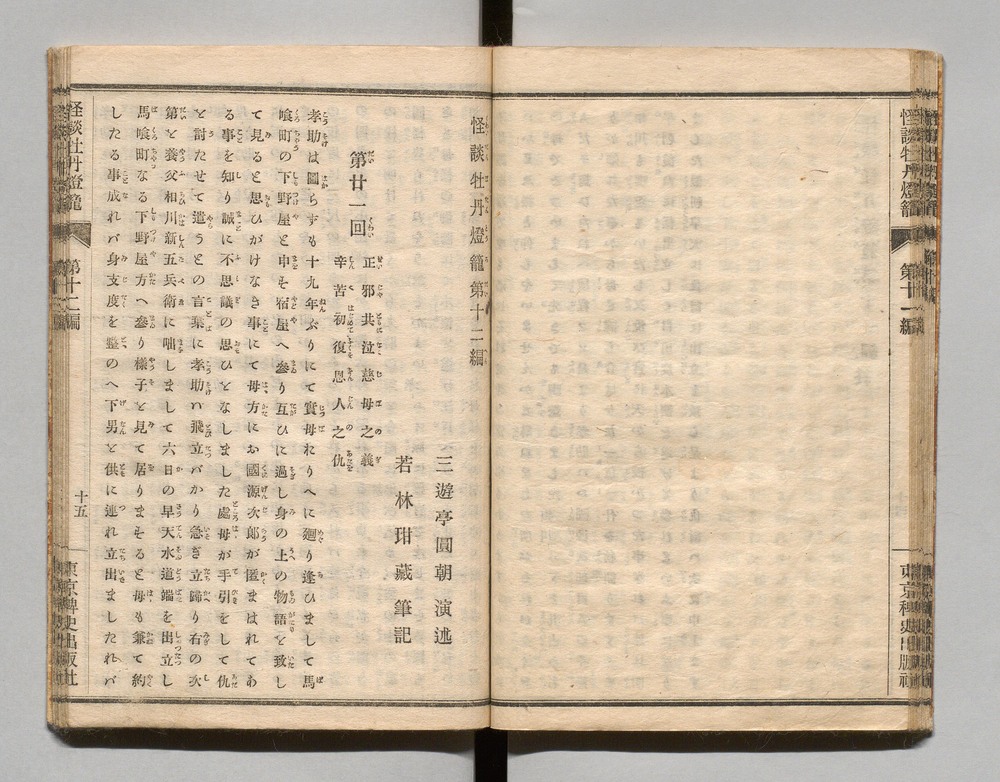 怪談牡丹燈籠
第十一編
東京稗史出版社
怪談牡丹燈籠第十二編
三遊亭圓朝演述
若林玵藏筆記
第廿一回
正邪共泣慈母之義
辛苦初復恩人之仇
孝助は圖らずも十九年ぶりにて實母おりゑに廻り逢ひまして馬
喰町の下野屋と申す宿屋へ參り互ひに過し身の上の物語を致し
て見ると思ひがけなき事にて母方にお國源次郎が匿まはれてあ
る事を知り誠に不思議の思ひをなしました處母が手引をして仇
を討たせて遣うとの言葉に孝助ハ飛立バかり急ぎ立歸り右の次
第を養父相川新五兵衛に咄しまして六日の早天水道端を出立し
馬喰町なる下野屋方へ參り樣子を見て居りますると母も兼て約
したる事成れバ身支度を整のへ下男を供に連れ立出ましたれバ
怪談牡丹燈籠
第十二編
十五
東京稗史出版社